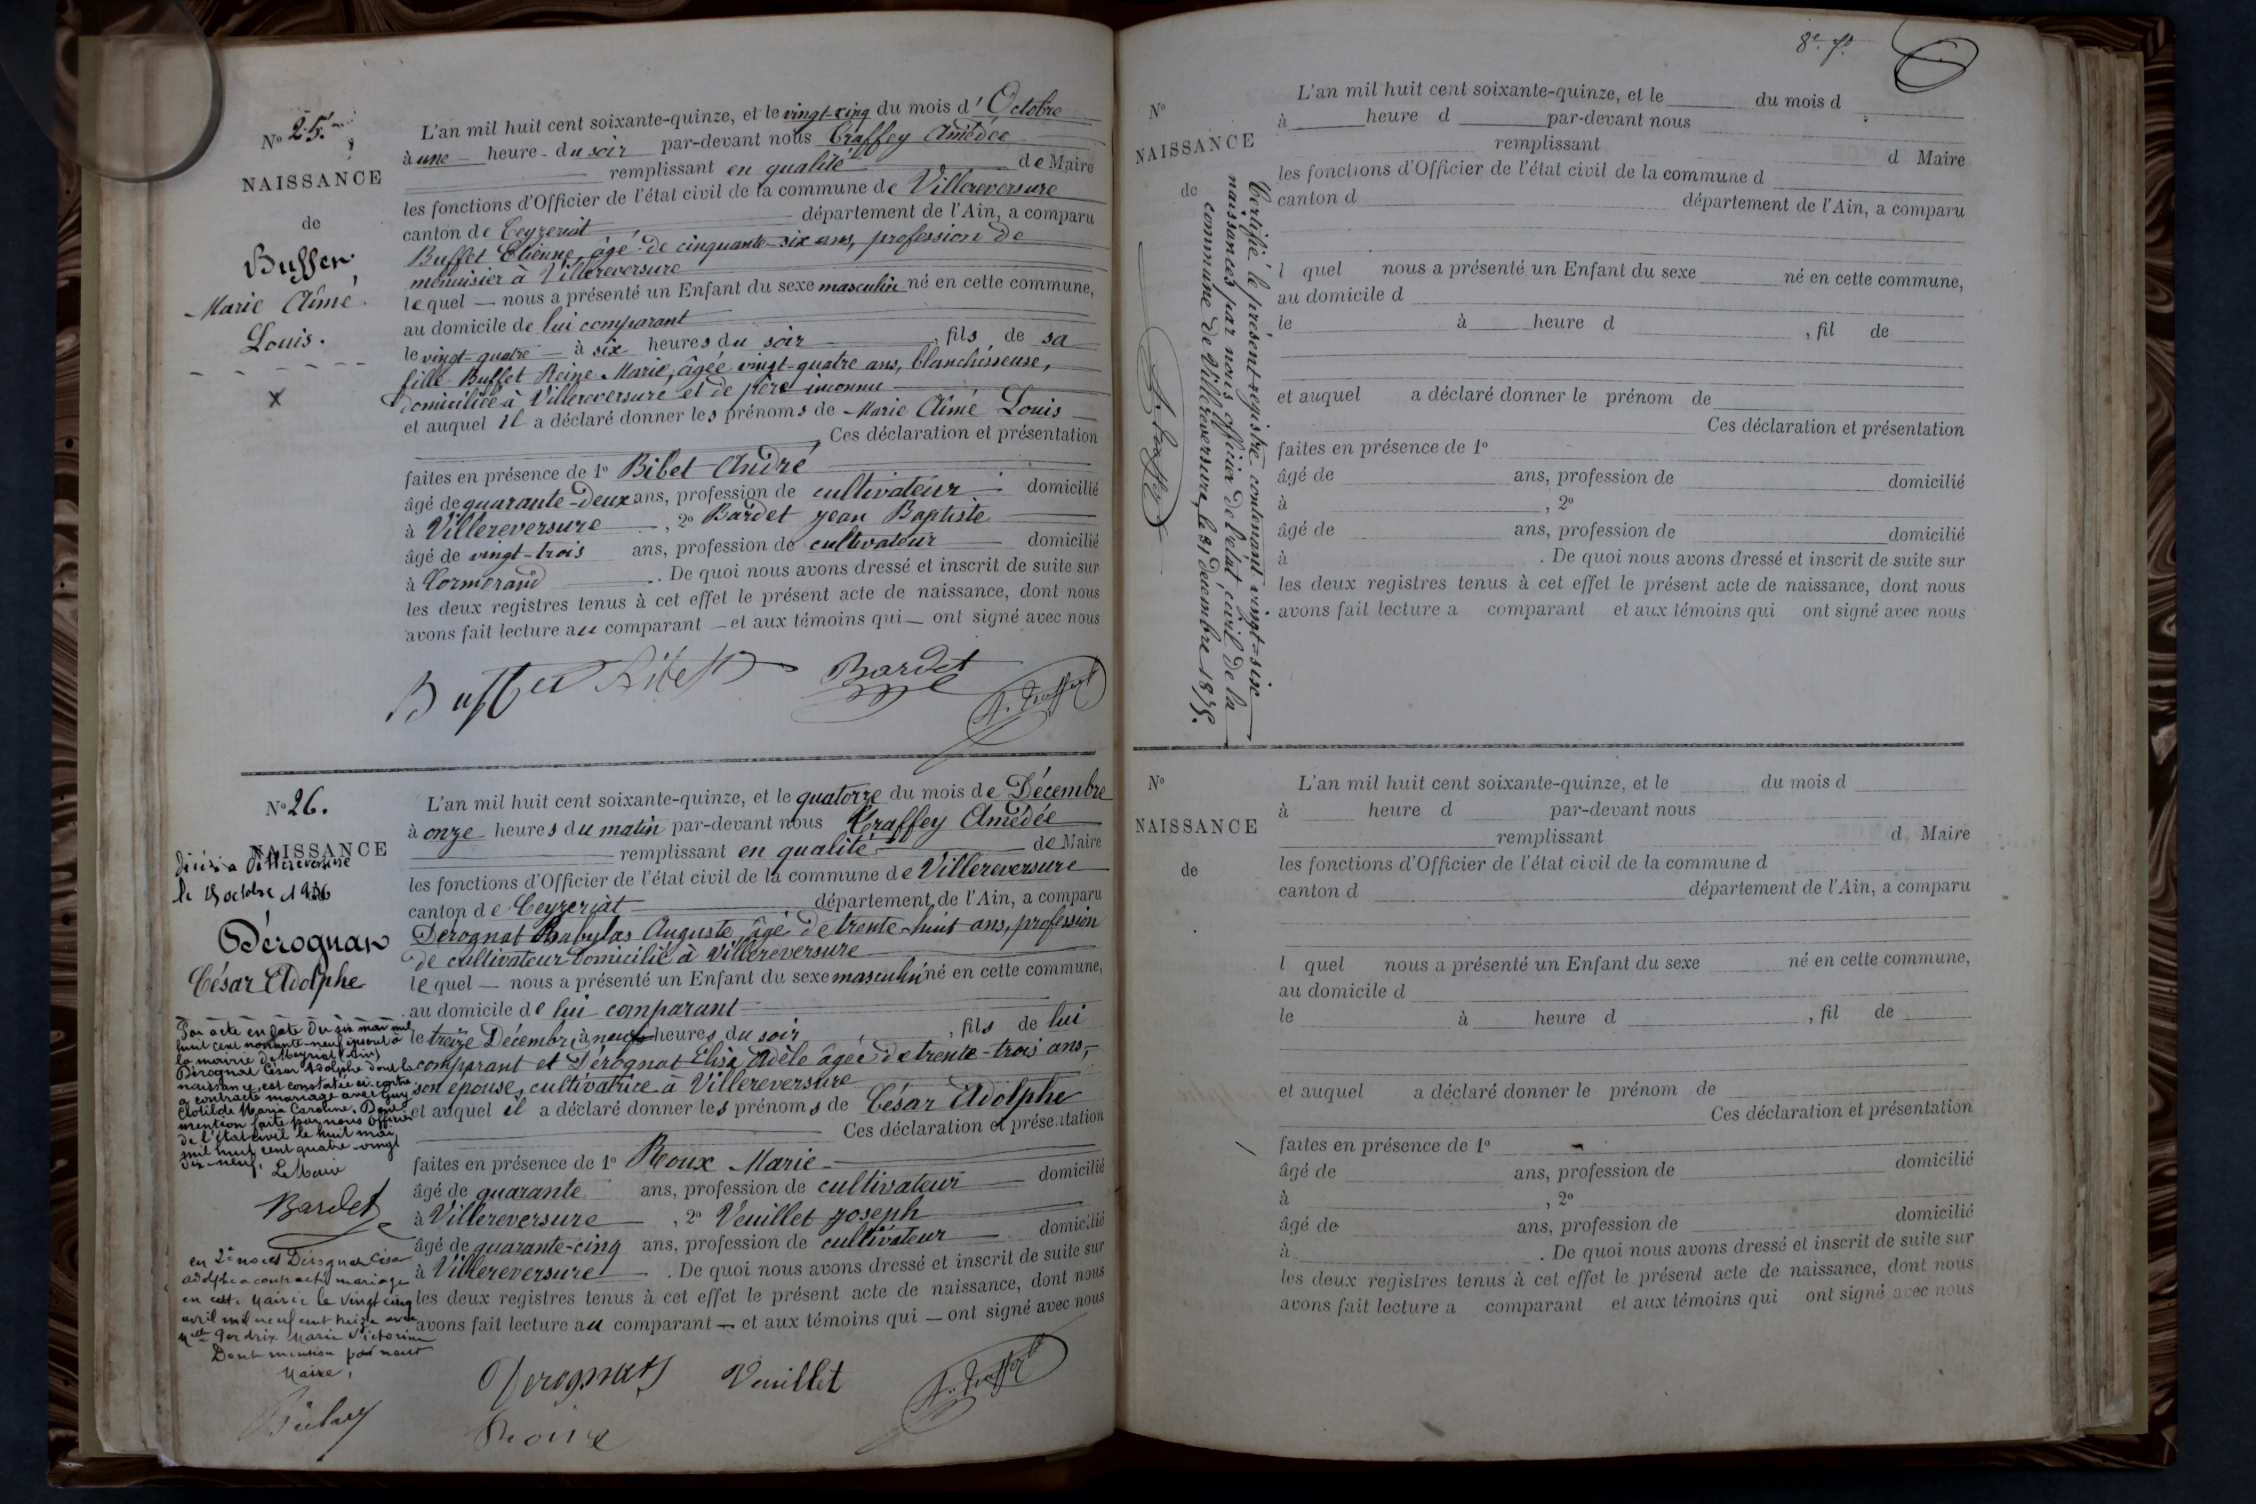 N° 25.
NAISSANCE
de
Buffet
Marie Aimé
Louis.
L'an mil huit cent soixante-quinze, et le vingt-cinq du mois d'Octobre
à une heure du soir par-devant nous Craffey Amédée
remplissant en qualité de Maire
les fonctions d'Officier de l'état civil de la commune de Villereversure
canton de Ceyzeriat département de l'Ain, a comparu
Buffet Etienne, âgé de cinquante-six ans, profession de
menuisier à Villereversure
lequel nous a présenté un Enfant du sexe masculin né en cette commune,
au domicile de lui comparant
le vingt-quatre à six heures du soir, fils de sa
fille Buffet Reine Marie, âgée vingt-quatre ans, blanchisseuse,
domiciliée à Villereversure et de père inconnu
et auquel il a déclaré donner les prénoms de Marie Aimé Louis
Ces déclaration et présentation
faites en présence de 1° Bibet André
âgé de quarante-deux ans, profession de cultivateur domicilié
à Villereversure, 2° Bardet Jean Baptiste
âgé de vingt-trois ans, profession de cultivateur domicilié
à Cormorand. De quoi nous avons dressé et inscrit de suite sur
les deux registres tenus à cet effet le présent acte de naissance, dont nous
avons fait lecture au comparant et aux témoins qui ont signé avec nous
Buffet Bibet Bardet
N° 26.
NAISSANCE
décédé à Villereversure
le 15 octobre 1936
Dérognat
César Adolphe
Par acte en date du six mai mil
huit cent nonante-neuf inscrit à
la mairie de Meyriat (Ain)
Dérognat César Adolphe dont la
naissance est constatée ci-contre
a contracté mariage avec Guy
Clotilde Maria Caroline. Dont
mention faite par nous Officier
de l'état civil le huit mai
mil huit cent quatre-vingt
dix-neuf. Le Maire
Bardet
en 2e noces Dérognat César
Adolphe a contracté mariage
en cette Mairie le vingt cinq
avril mil neuf cent treize avec
Melle Perdrix Marie Victorine
Dont mention par nous
Maire,
L'an mil huit cent soixante-quinze, et le quatorze du mois de Décembre
à onze heures du matin par-devant nous Craffey Amédée
remplissant en qualité de Maire
les fonctions d'Officier de l'état civil de la commune de Villereversure
canton de Ceyzeriat département de l'Ain, a comparu
Dérognat Babylas Auguste, âgé de trente-huit ans, profession
de cultivateur domicilié à Villereversure
lequel nous a présenté un Enfant du sexe masculin né en cette commune,
au domicile de lui comparant
le treize Décembre à neuf heures du soir, fils de lui
comparant et Dérognat Elisa Adèle âgée de trente-trois ans,
son épouse, cultivatrice à Villereversure
et auquel il a déclaré donner les prénoms de César Adolphe
Ces déclaration et présentation
faites en présence de 1° Roux Marie
âgé de quarante ans, profession de cultivateur domicilié
à Villereversure, 2° Veuillet Joseph
âgé de quarante-cinq ans, profession de cultivateur domicilié
à Villereversure. De quoi nous avons dressé et inscrit de suite sur
les deux registres tenus à cet effet le présent acte de naissance, dont nous
avons fait lecture au comparant et aux témoins qui ont signé avec nous
Derognat Veuillet
Roux
8e f°
N°
NAISSANCE
de
Certifié le présent registre contenant vingt-six
naissances par nous officier de l'état civil de la
commune de Villereversure, le 31 décembre 1875.
L'an mil huit cent soixante-quinze, et le du mois d
à heure d par-devant nous
remplissant d Maire
les fonctions d'Officier de l'état civil de la commune d
canton d département de l'Ain, a comparu
l quel nous a présenté un Enfant du sexe né en cette commune,
au domicile d
le à heure d , fil de
et auquel a déclaré donner le prénom de
Ces déclaration et présentation
faites en présence de 1°
âgé de ans, profession de domicilié
à , 2°
âgé de ans, profession de domicilié
à . De quoi nous avons dressé et inscrit de suite sur
les deux registres tenus à cet effet le présent acte de naissance, dont nous
avons fait lecture a comparant et aux témoins qui ont signé avec nous
N°
NAISSANCE
de
L'an mil huit cent soixante-quinze, et le du mois d
à heure d par-devant nous
remplissant d Maire
les fonctions d'Officier de l'état civil de la commune d
canton d département de l'Ain, a comparu
l quel nous a présenté un Enfant du sexe né en cette commune,
au domicile d
le à heure d , fil de
et auquel a déclaré donner le prénom de
Ces déclaration et présentation
faites en présence de 1°
âgé de ans, profession de domicilié
à , 2°
âgé de ans, profession de domicilié
à . De quoi nous avons dressé et inscrit de suite sur
les deux registres tenus à cet effet le présent acte de naissance, dont nous
avons fait lecture a comparant et aux témoins qui ont signé avec nous